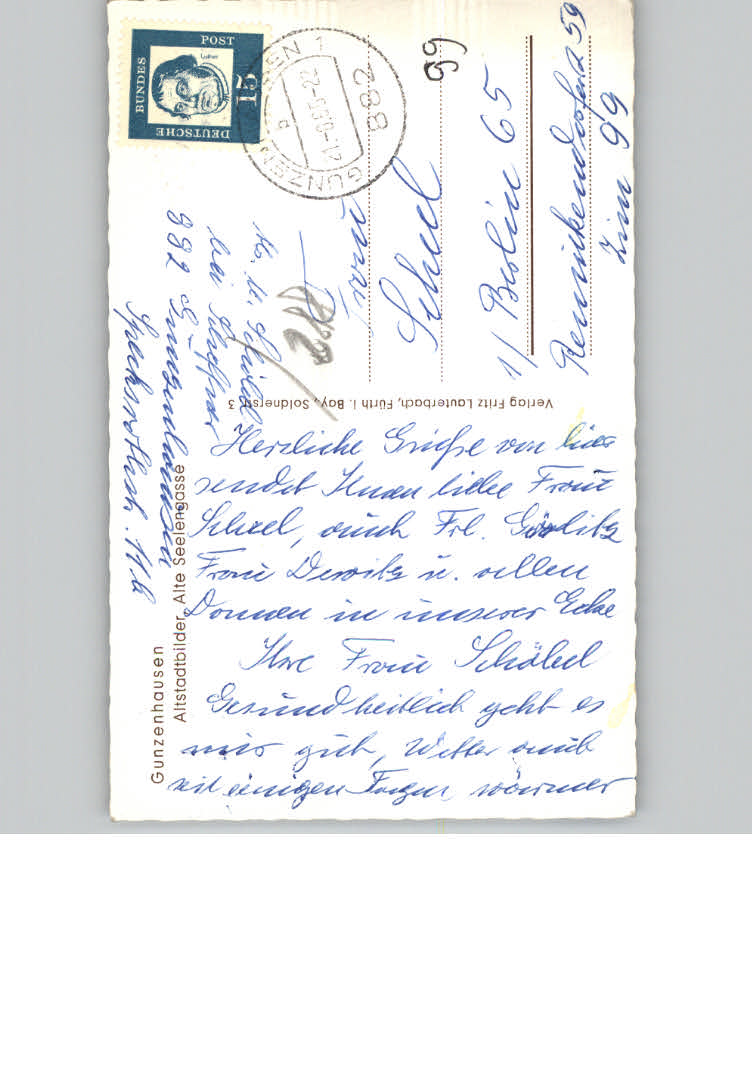 Gunzenhausen
Altstadtbilder, Alte Seelengasse
bei
882 Gunzenhausen
11b
Herzliche Grüße von hier
sendet Ihnen liebe Frau
Scheel, auch Frl. Görlitz
Frau Dewitz u. allen
Damen in unserer Ecke
Ihre Frau Schöbel
Gesundheitlich geht es
mir gut, Wetter auch
seit einigen Tagen wärmer
Verlag Fritz Lauterbach, Fürth i. Bay., Soldnerstr. 3
DEUTSCHE BUNDESPOST
15
Luther
882
GUNZENHAUSEN 1
a
99
Frau
Scheel
1/ Berlin 65
Reinickendorferstr 59
Zim 99